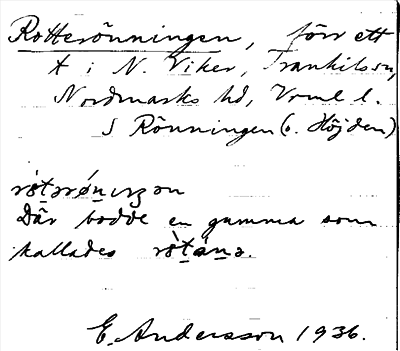 Rotterönningen, förr ett
t i N. Viker, Trankilsson,
Nordmarks hd, Vrml l.
S Rönningen (o. Höjden)
Där bodde en gumma som
kallades
E. Andersson 1936.